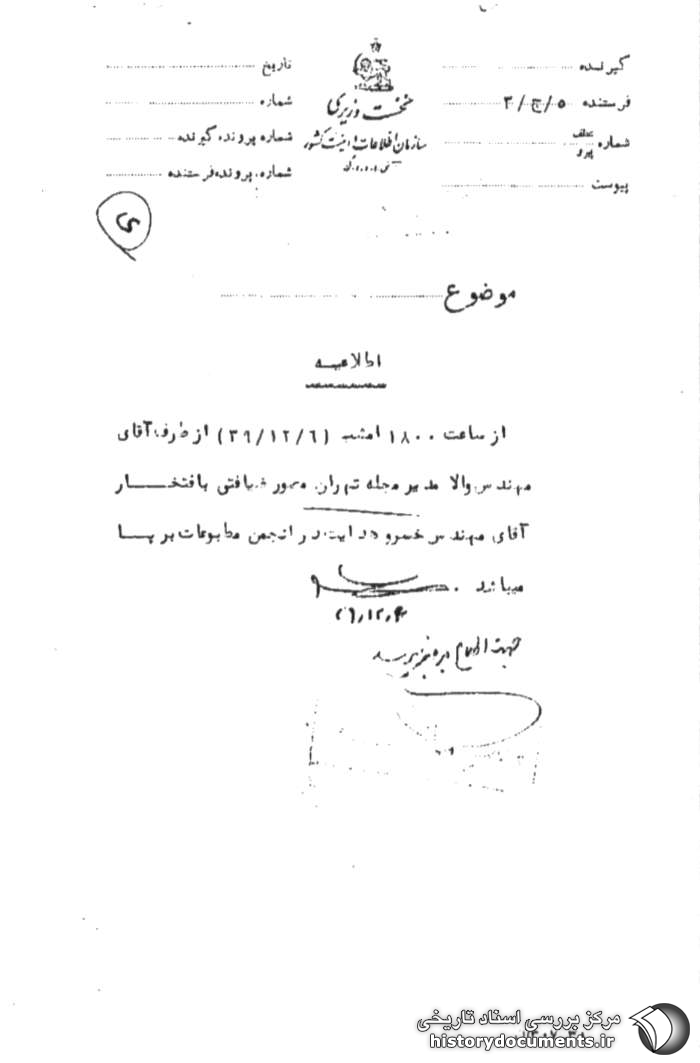 گیرنده
فرستنده ۵/ج/۳
شماره عطف پیرو
پیوست
نخست وزیری
سازمان اطلاعات و امنیت کشور
تاریخ
شماره
شماره پرونده گیرنده
شماره پرونده فرستنده
موضوع
اطلاعیه
از ساعت ۱۸۰۰ امشب (۳۹/۱۲/۶) از طرف آقای
مهندس والا مدیر مجله تهران مصور ضیافتی بافتخار
آقای مهندس خسرو هدایت در انجمن مطبوعات برپا
میباشد .
مرکز بررسی اسناد تاریخی
historydocuments.ir